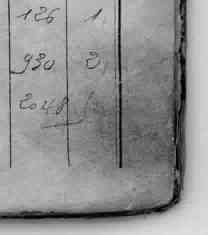 126 1
930 2
2048